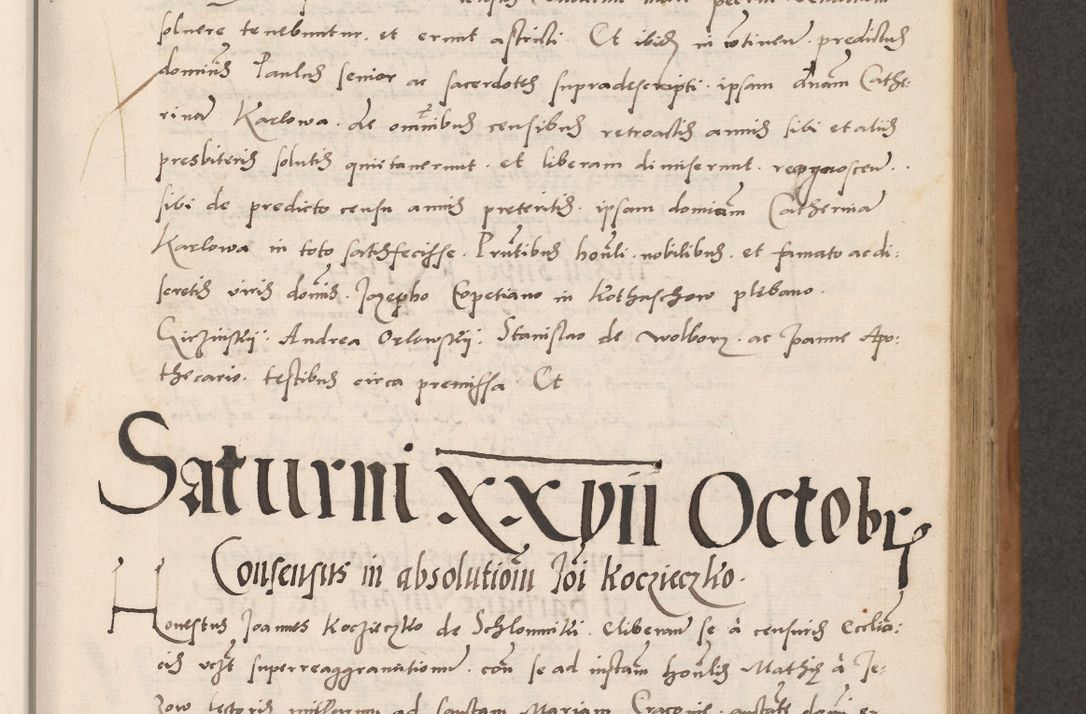 solvere tenebuntur et erunt astricti. Et ibidem in continenti predictus
dominus Paulus senior ac sacerdotes supradescripti ipsam dnam Cathe:
rinam Karlowa de omnibus censibus retroactis annis sibi et aliis
presbiteris solutis quictaverunt. et liberam dimiserunt. recognoscen.
sibi de predicto censu annis preteritis. ipsam dominam Catherinam
Karlowa in toto satisfecisse. Prntibus honli. nobilibus. et famato ac di:
scretis viris domnis. Jozepho Copetiano in Kothuschow plebano.
Girzinskij. Andrea Orlewskij. Stanislao de Wolborz. ac Joanne Apo:
thecario. testibus circa premissa Et
Saturni XXVII Octobris
Consensus in absolutionem Jois Koczieczko.
Honestus Joannes Koczieczko de Schlomniki. Cliberari se a censuris Ecclia:
cis ut superreaggravationum. con se ad instam honlis Mathie a Je:
zow lectoris ad Sanctam Mariam Cracovie. domi